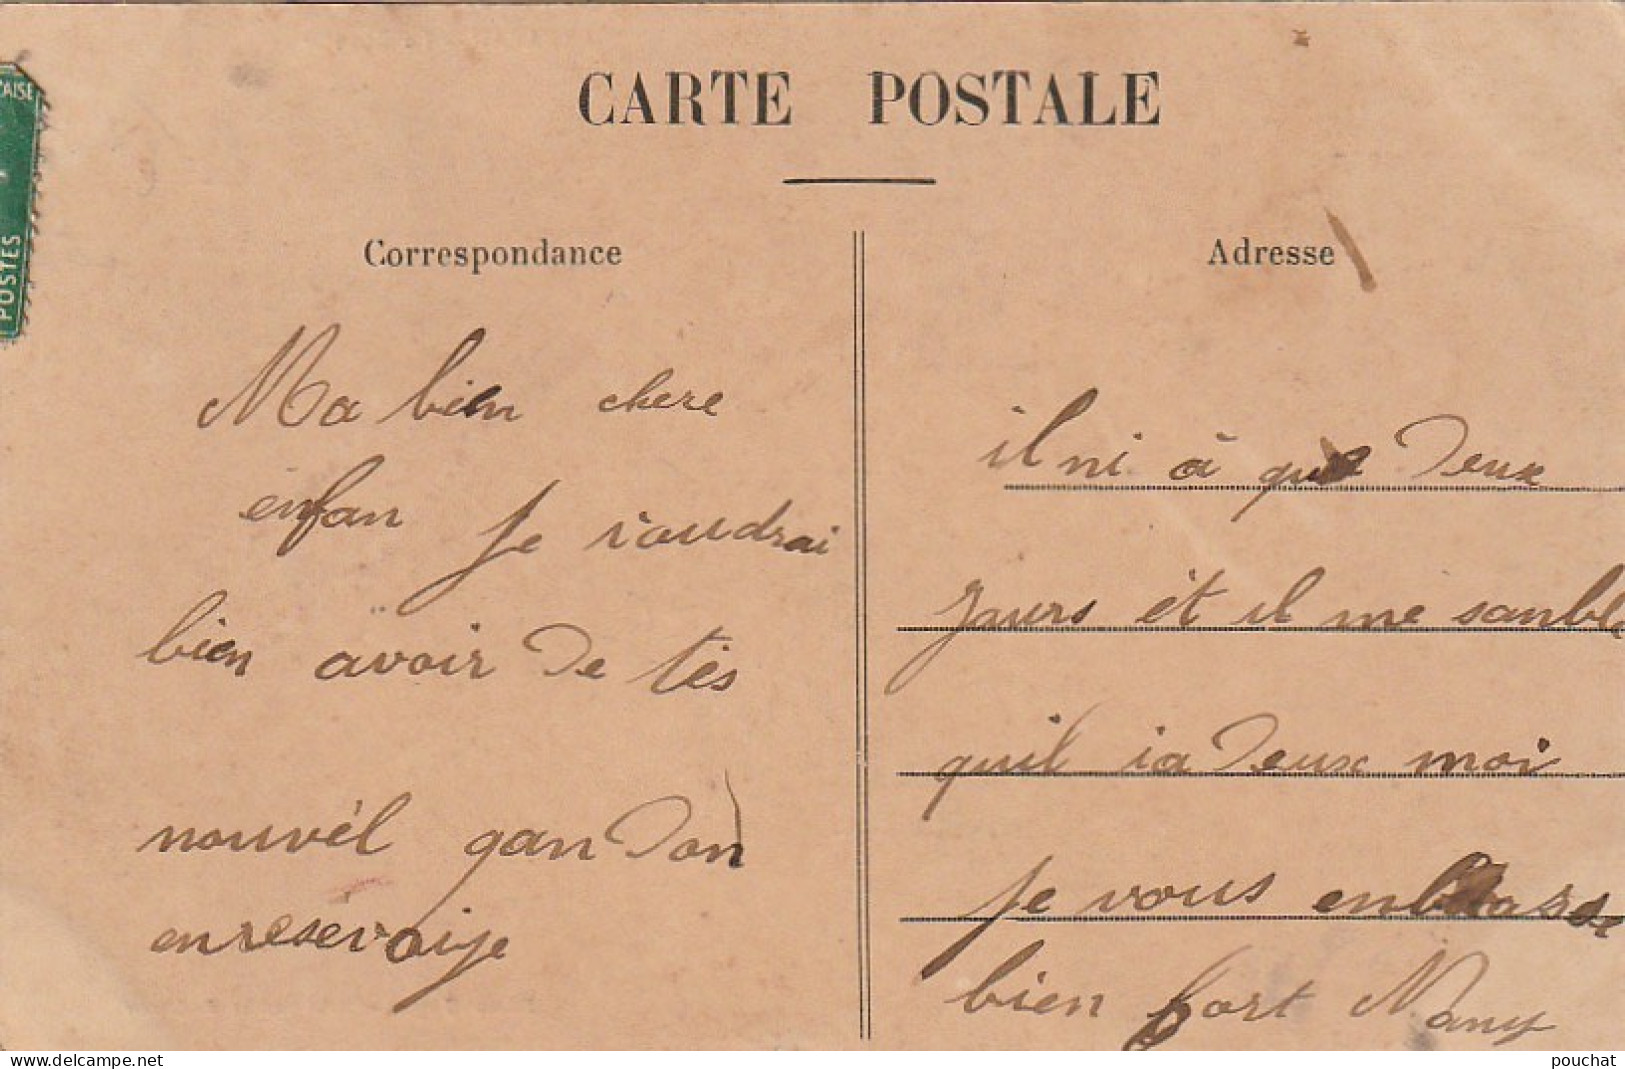 CARTE POSTALE
Correspondance
Ma bien chere
enfan je voudrai
bien avoir de tés
nouvél gandon
enresevraije
Adresse
il ni à que deux
jours ét il me sanble
quil ia deux moi
je vous enbrasse
bien fort Nany
CAISE
POSTES
www.delcampe.net
pouchat